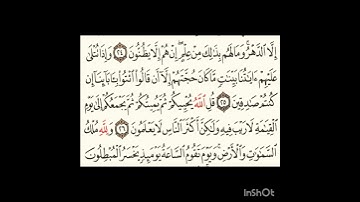 إِلَّا ٱلدَّهْرُ وَمَا لَهُم بِذَٰلِكَ مِنْ عِلْمٍ إِنْ هُمْ إِلَّا يَظُنُّونَ ٢٤ وَإِذَا تُتْلَىٰ
عَلَيْهِمْ ءَايَٰتُنَا بَيِّنَٰتٍ مَّا كَانَ حُجَّتَهُمْ إِلَّآ أَن قَالُوا۟ ٱئْتُوا۟ بِـَٔابَآئِنَآ إِن
كُنتُمْ صَٰدِقِينَ ٢٥ قُلِ ٱللَّهُ يُحْيِيكُمْ ثُمَّ يُمِيتُكُمْ ثُمَّ يَجْمَعُكُمْ إِلَىٰ يَوْمِ
ٱلْقِيَٰمَةِ لَا رَيْبَ فِيهِ وَلَٰكِنَّ أَكْثَرَ ٱلنَّاسِ لَا يَعْلَمُونَ ٢٦ وَلِلَّهِ مُلْكُ
ٱلسَّمَٰوَٰتِ وَٱلْأَرْضِ وَيَوْمَ تَقُومُ ٱلسَّاعَةُ يَوْمَئِذٍ يَخْسَرُ ٱلْمُبْطِلُونَ
InShOt